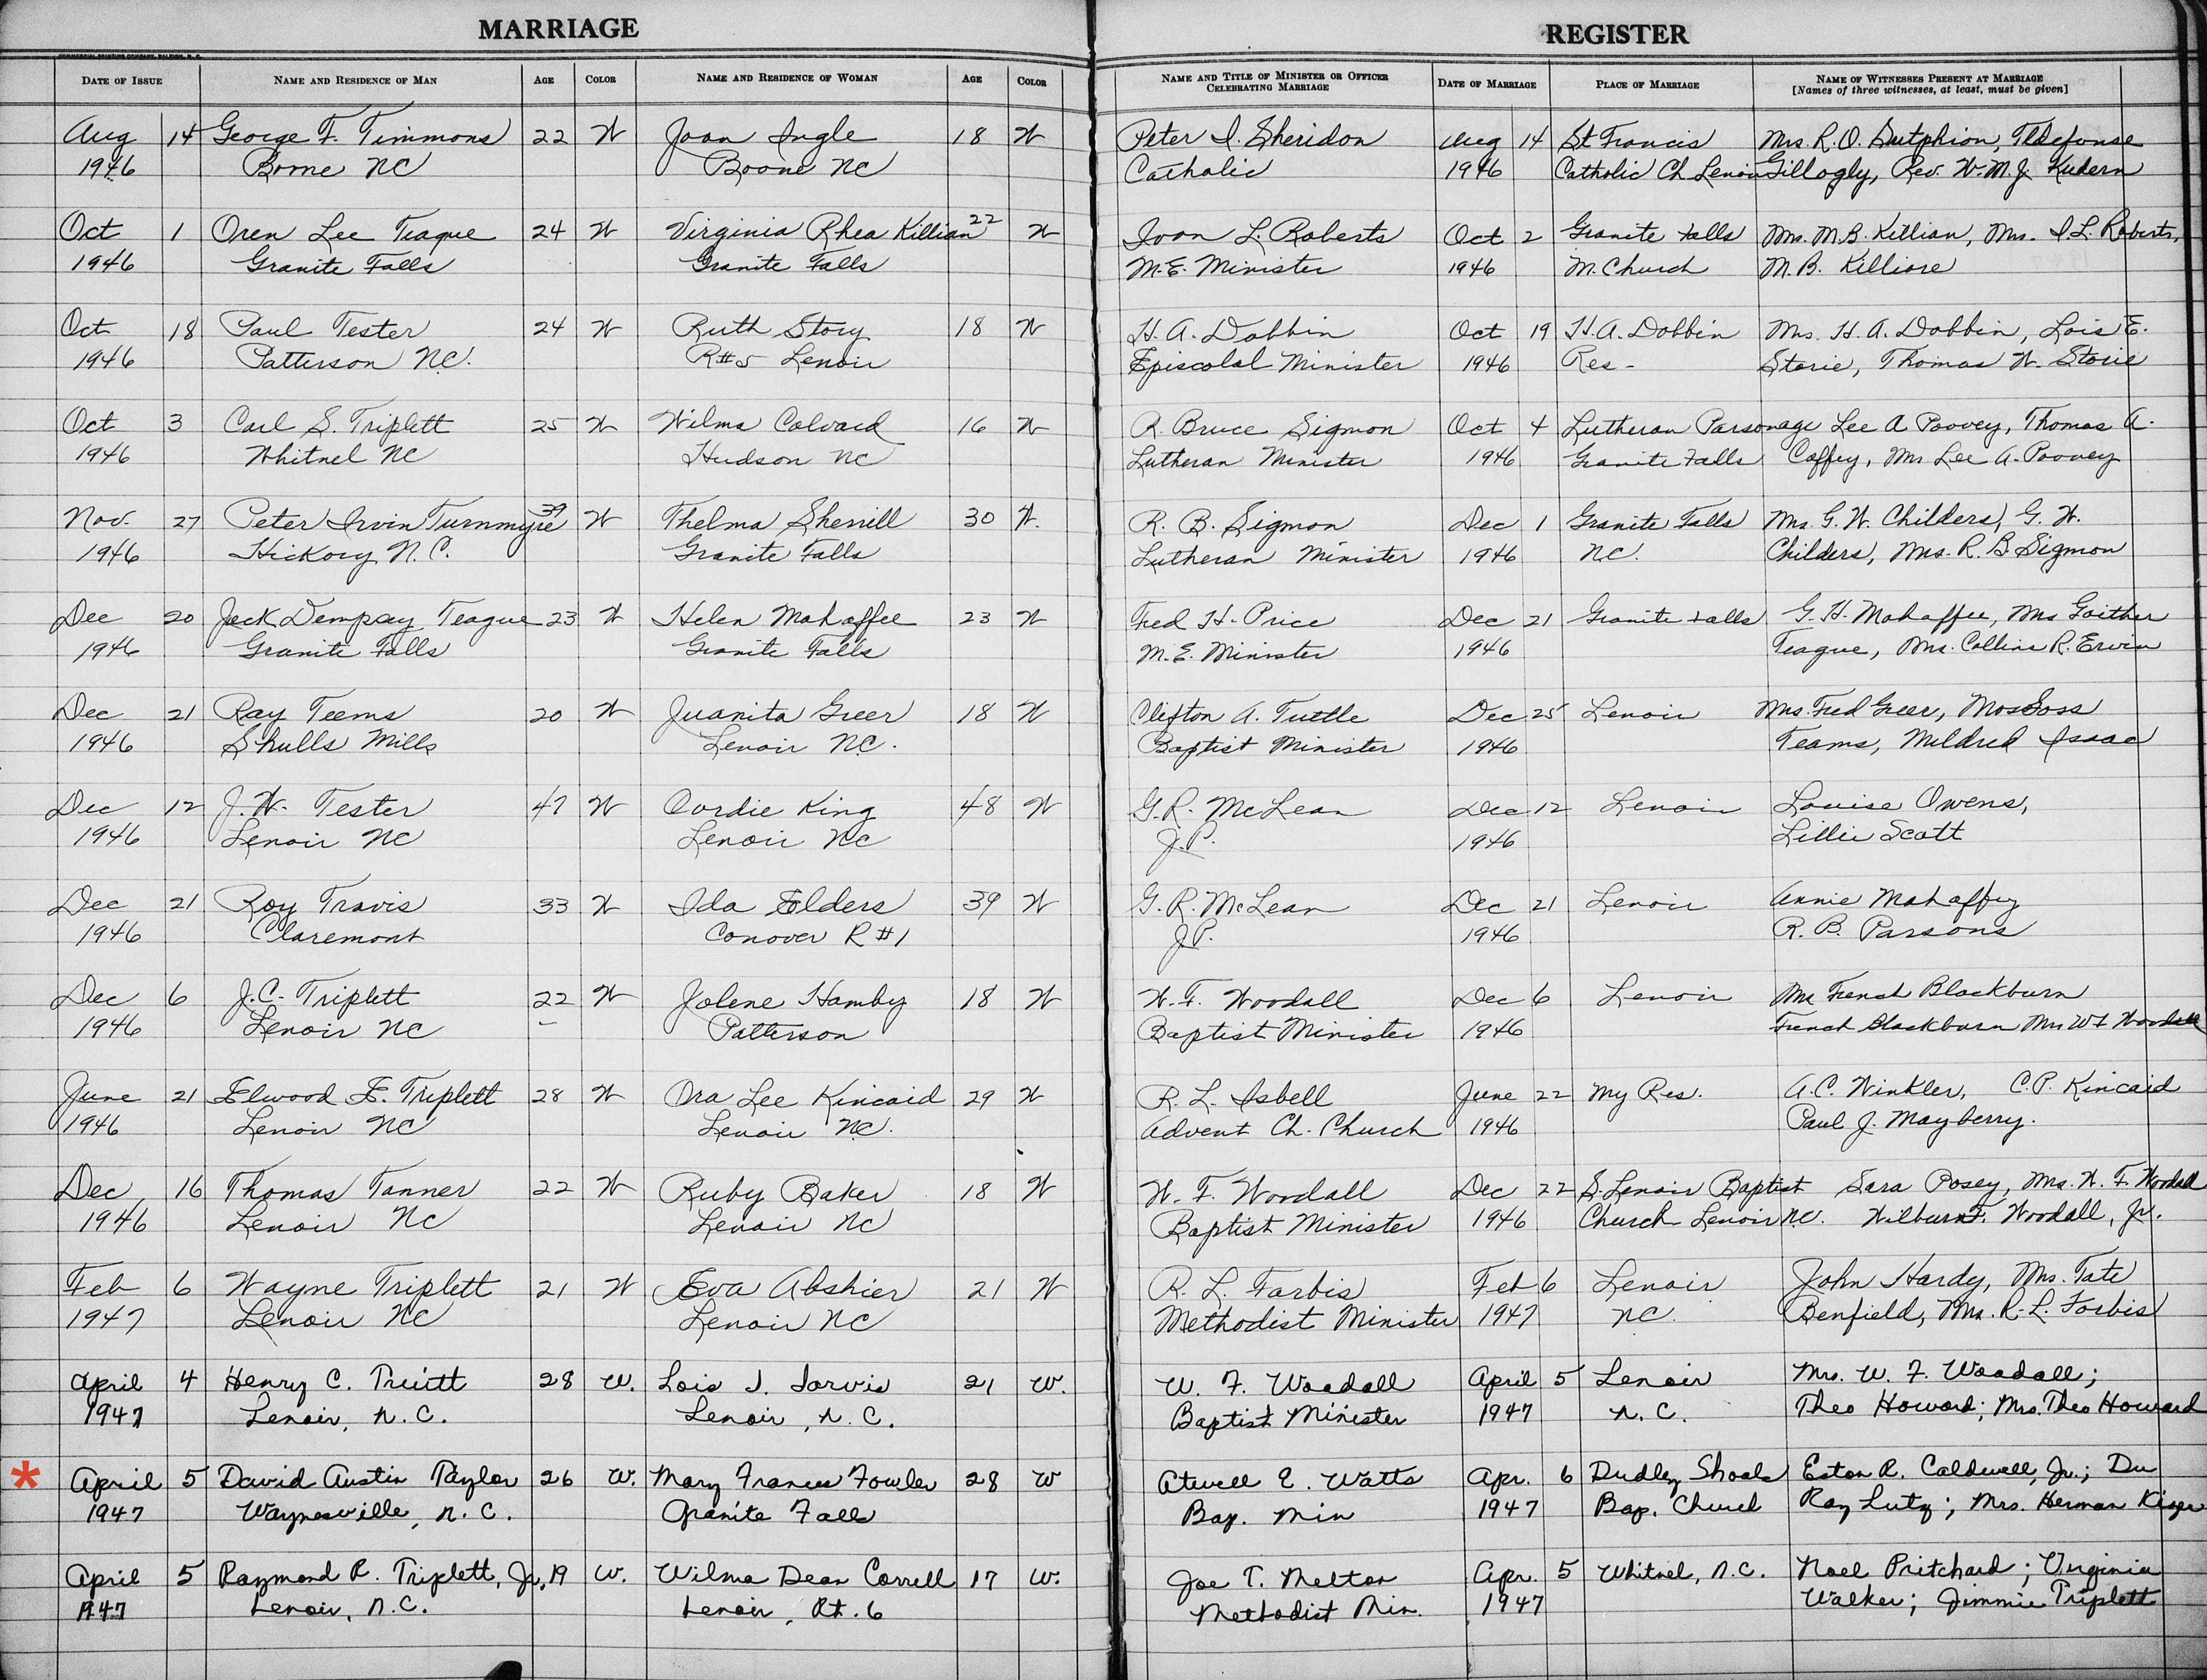 MARRIAGE REGISTER
DATE OF ISSUE NAME AND RESIDENCE OF MAN AGE COLOR NAME AND RESIDENCE OF WOMAN AGE COLOR NAME AND TITLE OF MINISTER OR OFFICER CELEBRATING MARRIAGE DATE OF MARRIAGE PLACE OF MARRIAGE NAME OF WITNESSES PRESENT AT MARRIAGE
[Names of three witnesses, at least, must be given]
Aug 14 George F. Timmons 22 W Joan Ingle 18 W Peter I. Sheridon Aug 14 St Francis Mrs. R. O. Sutphion, Ildefonse
1946 Boone NC Boone NC Catholic 1946 Catholic Ch Lenoir Gillogly, Rev. W. M. J. Kudern
Oct 1 Oren Lee Teague 24 W Virginia Rhea Killian 22 W Ivon L. Roberts Oct 2 Granite Falls Mrs. M. B. Killian, Mrs. I. L. Roberts,
1946 Granite Falls Granite Falls M. E. Minister 1946 M. Church M. B. Killiore
Oct 18 Paul Tester 24 W Ruth Story 18 W H. A. Dobbin Oct 19 H. A. Dobbin Mrs. H. A. Dobbin, Lois E.
1946 Patterson N.C. R#5 Lenoir Episcolal Minister 1946 Res- Storie, Thomas W. Storie
Oct 3 Carl S. Triplett 25 W Wilma Colvard 16 W R. Bruce Sigmon Oct 4 Lutheran Parsonage Lee A Poovey, Thomas A.
1946 Whitnel NC Hudson NC Lutheran Minister 1946 Granite Falls Coffey, Mrs Lee A. Poovey
Nov. 27 Peter Irvin Turnmyre 39 W Thelma Sherrill 30 W. R. B. Sigmon Dec 1 Granite Falls Mrs. G. W. Childers, G. W.
1946 Hickory N.C. Granite Falls Lutheran Minister 1946 N.C. Childers, Mrs. R. B Sigmon
Dec 20 Jack Dempsey Teague 23 W Helen Mahaffee 23 W Fred H. Price Dec 21 Granite Falls G. H. Mahaffee, Mrs Gaither
1946 Granite Falls Granite Falls M. E. Minister 1946 Teague, Mrs. Collins R. Ervin
Dec 21 Ray Teems 20 W Juanita Greer 18 W Clifton A. Tuttle Dec 25 Lenoir Mrs. Fred Greer, Mos Goss
1946 Shulls Mills Lenoir N.C. Baptist Minister 1946 Teams, Mildred Isaac
Dec 12 J. W. Tester 47 W Cordie King 48 W G. R. McLean Dec 12 Lenoir Louise Owens,
1946 Lenoir NC Lenoir NC J. P. 1946 Lillie Scott
Dec 21 Roy Travis 33 W Ida Elders 39 W G. R. McLean Dec 21 Lenoir Annie Mahaffey
1946 Claremont Conover R #1 J.P. 1946 R. B. Parsons
Dec 6 J. C. Triplett 22 W Jolene Hamby 18 W W. F. Woodall Dec 6 Lenoir Mrs French Blackburn
1946 Lenoir NC Patterson Baptist Minister 1946 French Blackburn Mrs W F Woodall
June 21 Elwood E. Triplett 28 W Ora Lee Kincaid 29 W R. L. Isbell June 22 My Res. A. C. Winkler, C. P. Kincaid
1946 Lenoir NC Lenoir NC. Advent Ch. Church 1946 Paul J. Mayberry.
Dec 16 Thomas Tanner 22 W Ruby Baker 18 W W. F. Woodall Dec 22 S. Lenoir Baptist Sara Posey, Mrs. W. F. Woodall
1946 Lenoir NC Lenoir NC Baptist Minister 1946 Church Lenoir N.C. Wilburn F. Woodall, Jr.
Feb 6 Wayne Triplett 21 W Eva Abshier 21 W R. L. Forbis Feb 6 Lenoir John Hardy, Mrs. Tate
1947 Lenoir NC Lenoir NC Methodist Minister 1947 NC. Benfield, Mrs. R. L. Forbis
April 4 Henry C. Pruitt 28 W. Lois J. Jarvis 21 W. W. F. Woodall April 5 Lenoir Mrs. W. F. Woodall;
1947 Lenoir, N. C. Lenoir, N. C. Baptist Minister 1947 N. C. Theo Howard; Mrs. Theo Howard
* April 5 David Austin Taylor 26 W. Mary Frances Fowler 28 W Atwell E. Watts Apr. 6 Dudley Shoals Eston R. Caldwell, Jr.; Du
1947 Waynesville, N. C. Granite Falls Bap. Min 1947 Bap. Church Ray Lutz; Mrs. Herman Kiser
April 5 Raymond R. Triplett, Jr. 19 W. Wilma Dean Correll 17 W. Joe T. Melton Apr. 5 Whitnel, N.C. Noel Pritchard; Virginia
1947 Lenoir, N.C. Lenoir, Rt. 6 Methodist Min. 1947 Walker; Jimmie Triplett